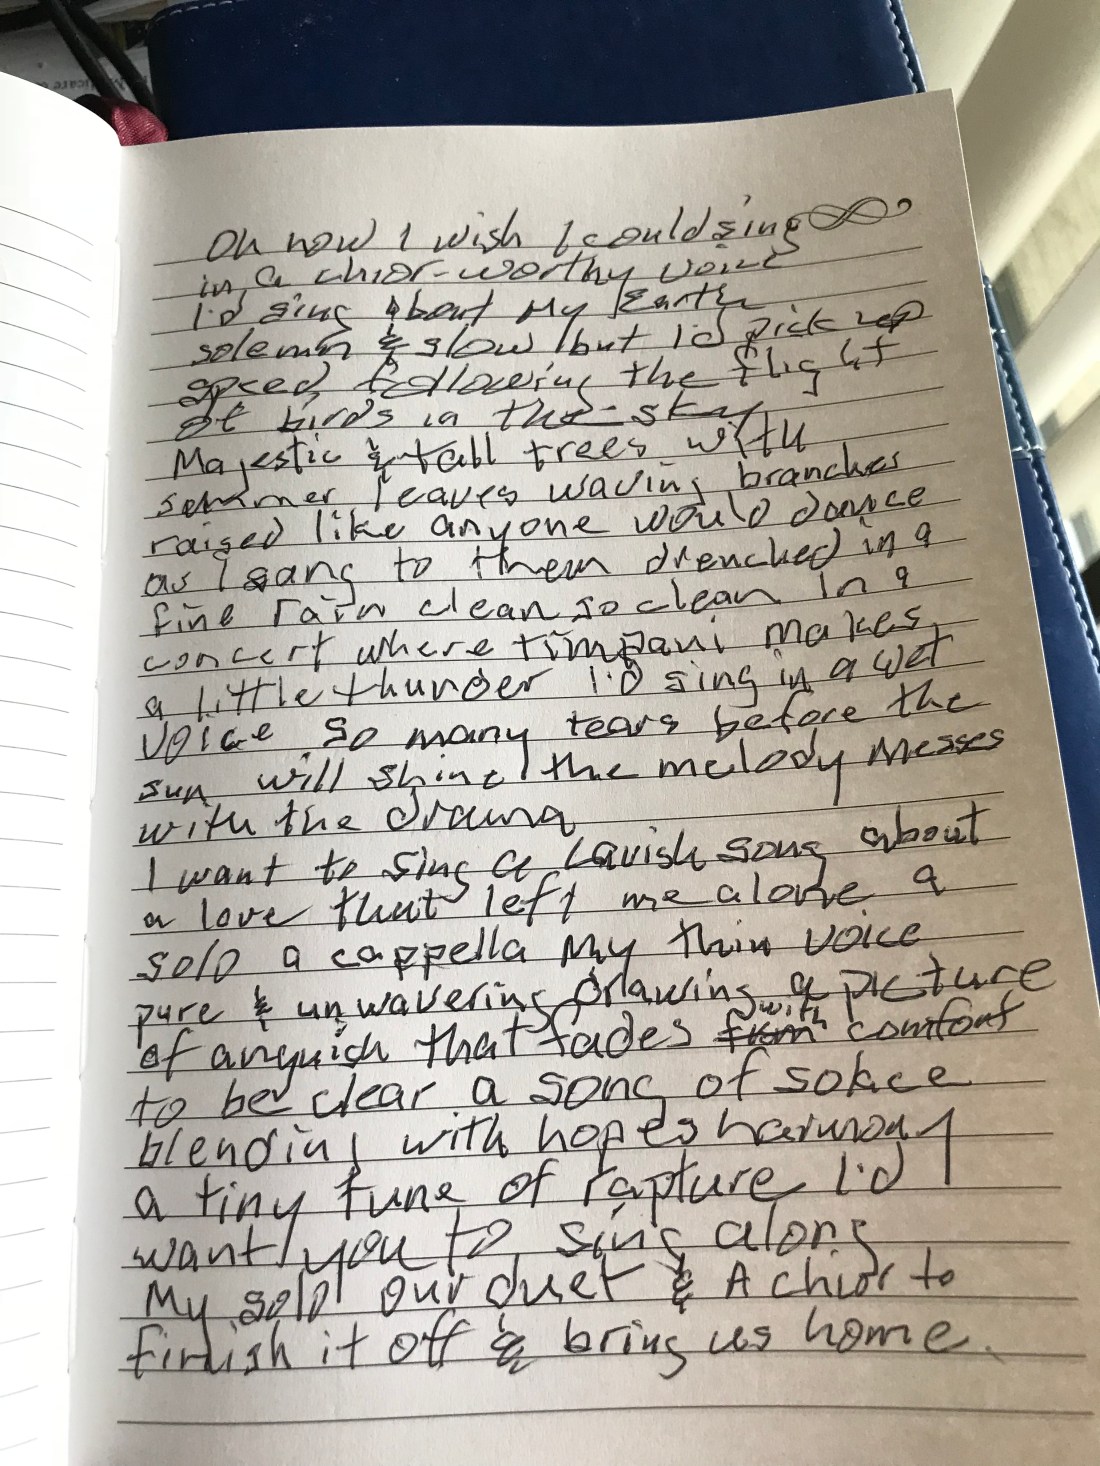 Oh how I wish I could sing
in a chior-worthy voice
I'd sing about My Earth
solemn & slow but I'd pick up
speed following the flight
of birds in the sky
Majestic & tall trees with
summer leaves waving branches
raised like anyone would dance
as I sang to them drenched in a
fine rain clean so clean In a
concert where timpani makes
a little thunder I'd sing in a wet
voice so many tears before the
sun will shine the melody messes
with the drama
I want to sing a lavish song about
a love that left me alone a
solo a cappella My thin voice
pure & unwavering drawing a picture
of anguish that fades from with comfort
to be clear a song of solace
blending with hopes harmony
a tiny tune of rapture I'd
want you to sing along
My solo our duet & A chior to
finish it off & bring us home.